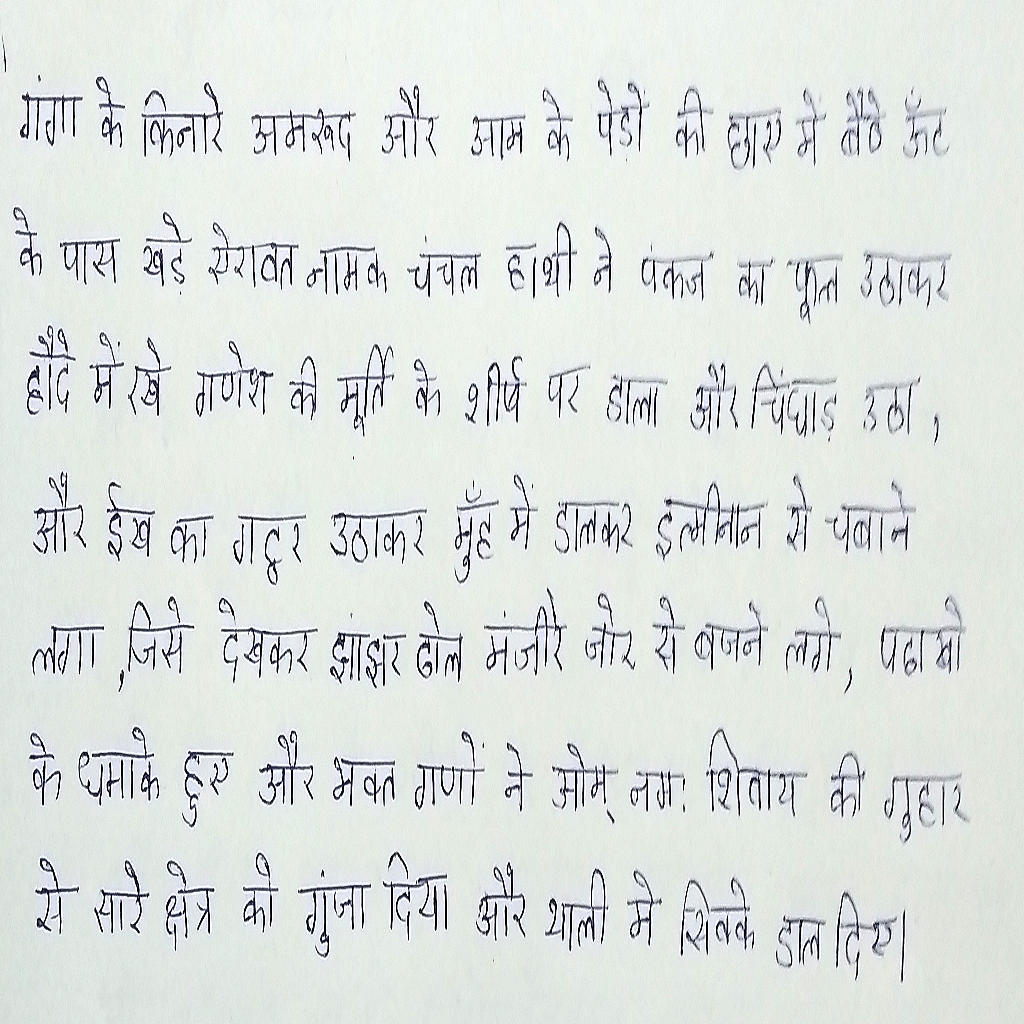 गंगा के किनारे अमरूद और आम के पेड़ों की छाए में बैठे ऊँट
के पास खड़े ऐरावत नामक चंचल हाथी ने पंकज का फूल उठाकर
हौदे में रखे गणेश की मूर्ति के शीर्ष पर डाला और चिंघाड़ उठा,
और ईख का गट्ठर उठाकर मुँह में डालकर इत्मीनान से चबाने
लगा, जिसे देखकर झांझर ढोल मंजीरे जोर से बजने लगे, पटाखो
के धमाके हुए और भक्त गणों ने ओम् नमः शिवाय की गुहार
से सारे क्षेत्र को गुंजा दिया और थाली मे सिक्के डाल दिए।